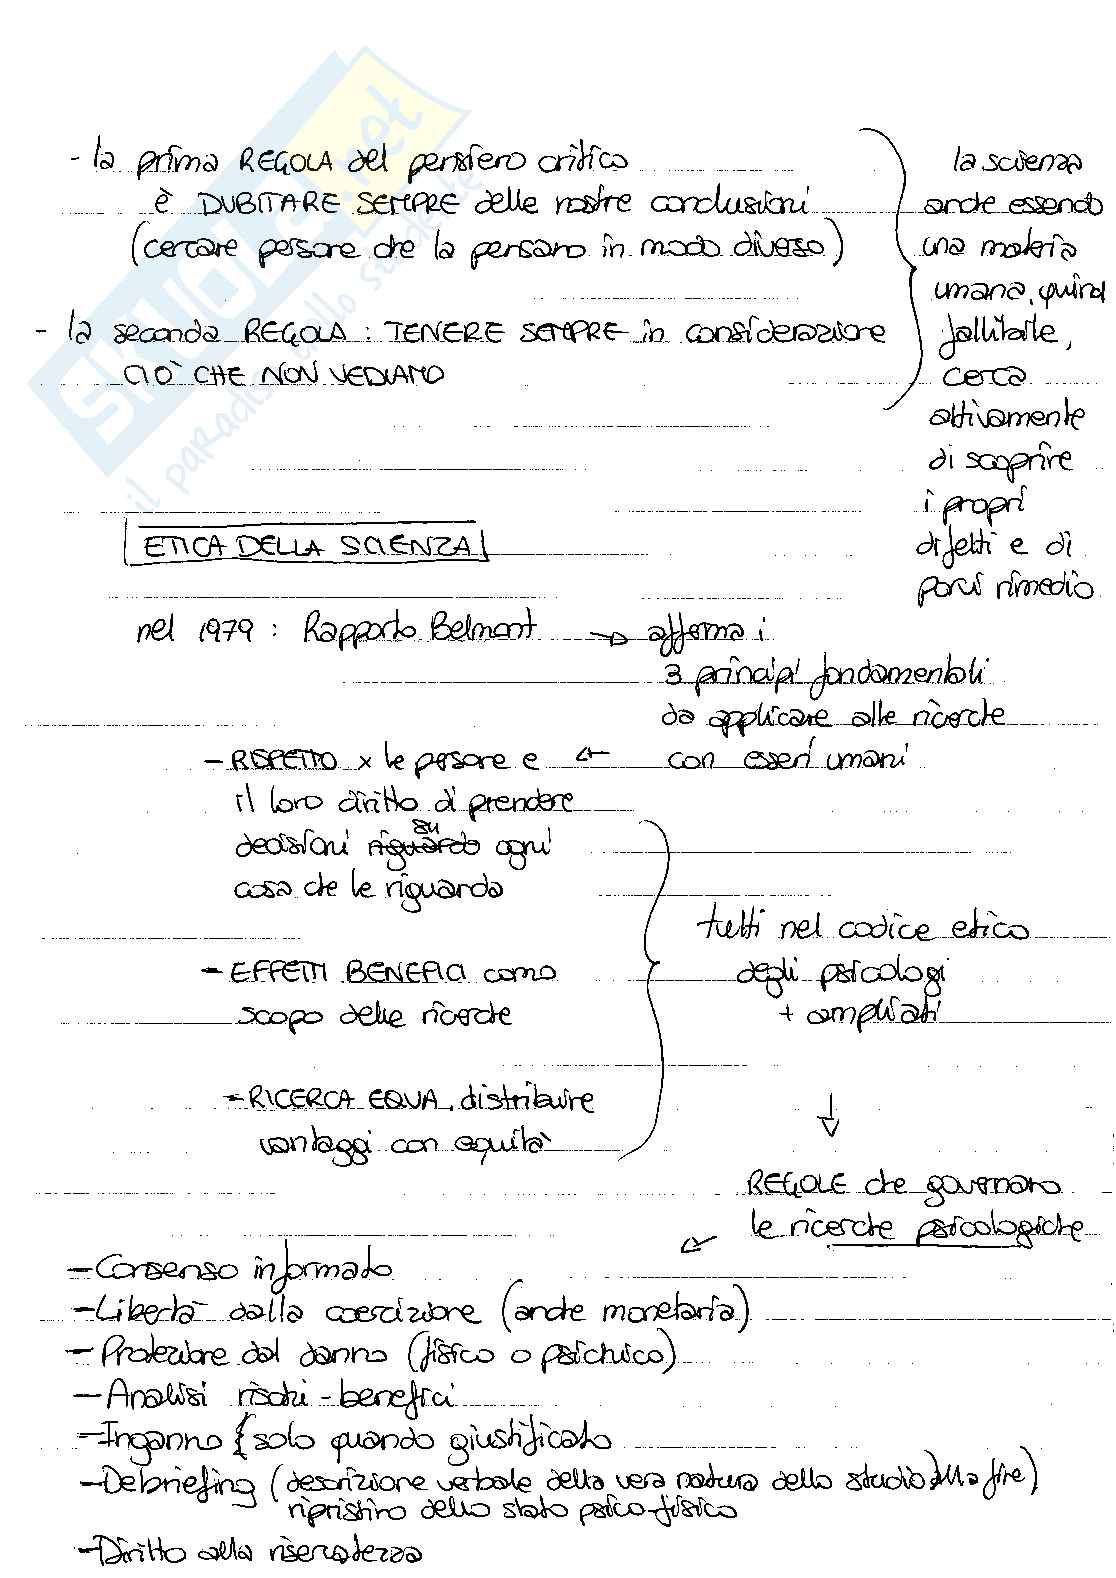 - la prima REGOLA del pensiero critico
è DUBITARE SEMPRE delle nostre conclusioni
(cercare persone che la pensano in modo diverso)
- la seconda REGOLA : TENERE SEMPRE in considerazione
CIÒ CHE NON VEDIAMO
la scienza
anche essendo
una materia
umana, quindi
fallibile,
cerca
attivamente
di scoprire
i propri
difetti e di
porvi rimedio
SKUOLA.net
il paradiso dello studente
ETICA DELLA SCIENZA
nel 1979 : Rapporto Belmont → afferma i
3 principi fondamentali
da applicare alle ricerche
con esseri umani
←
- RISPETTO x le persone e
il loro diritto di prendere
decisioni riguardo su ogni
cosa che le riguarda
- EFFETTI BENEFICI come
scopo delle ricerche
- RICERCA EQUA, distribuire
vantaggi con equità
tutti nel codice etico
degli psicologi
+ ampliati
↓
REGOLE che governano
le ricerche psicologiche
←
- Consenso informato
- Libertà dalla coercizione (anche monetaria)
- Protezione dal danno (fisico o psichico)
- Analisi rischi - benefici
- Inganno { solo quando giustificato
- Debriefing (descrizione verbale della vera natura dello studio alla fine)
ripristino dello stato psico-fisico
- Diritto alla riservatezza